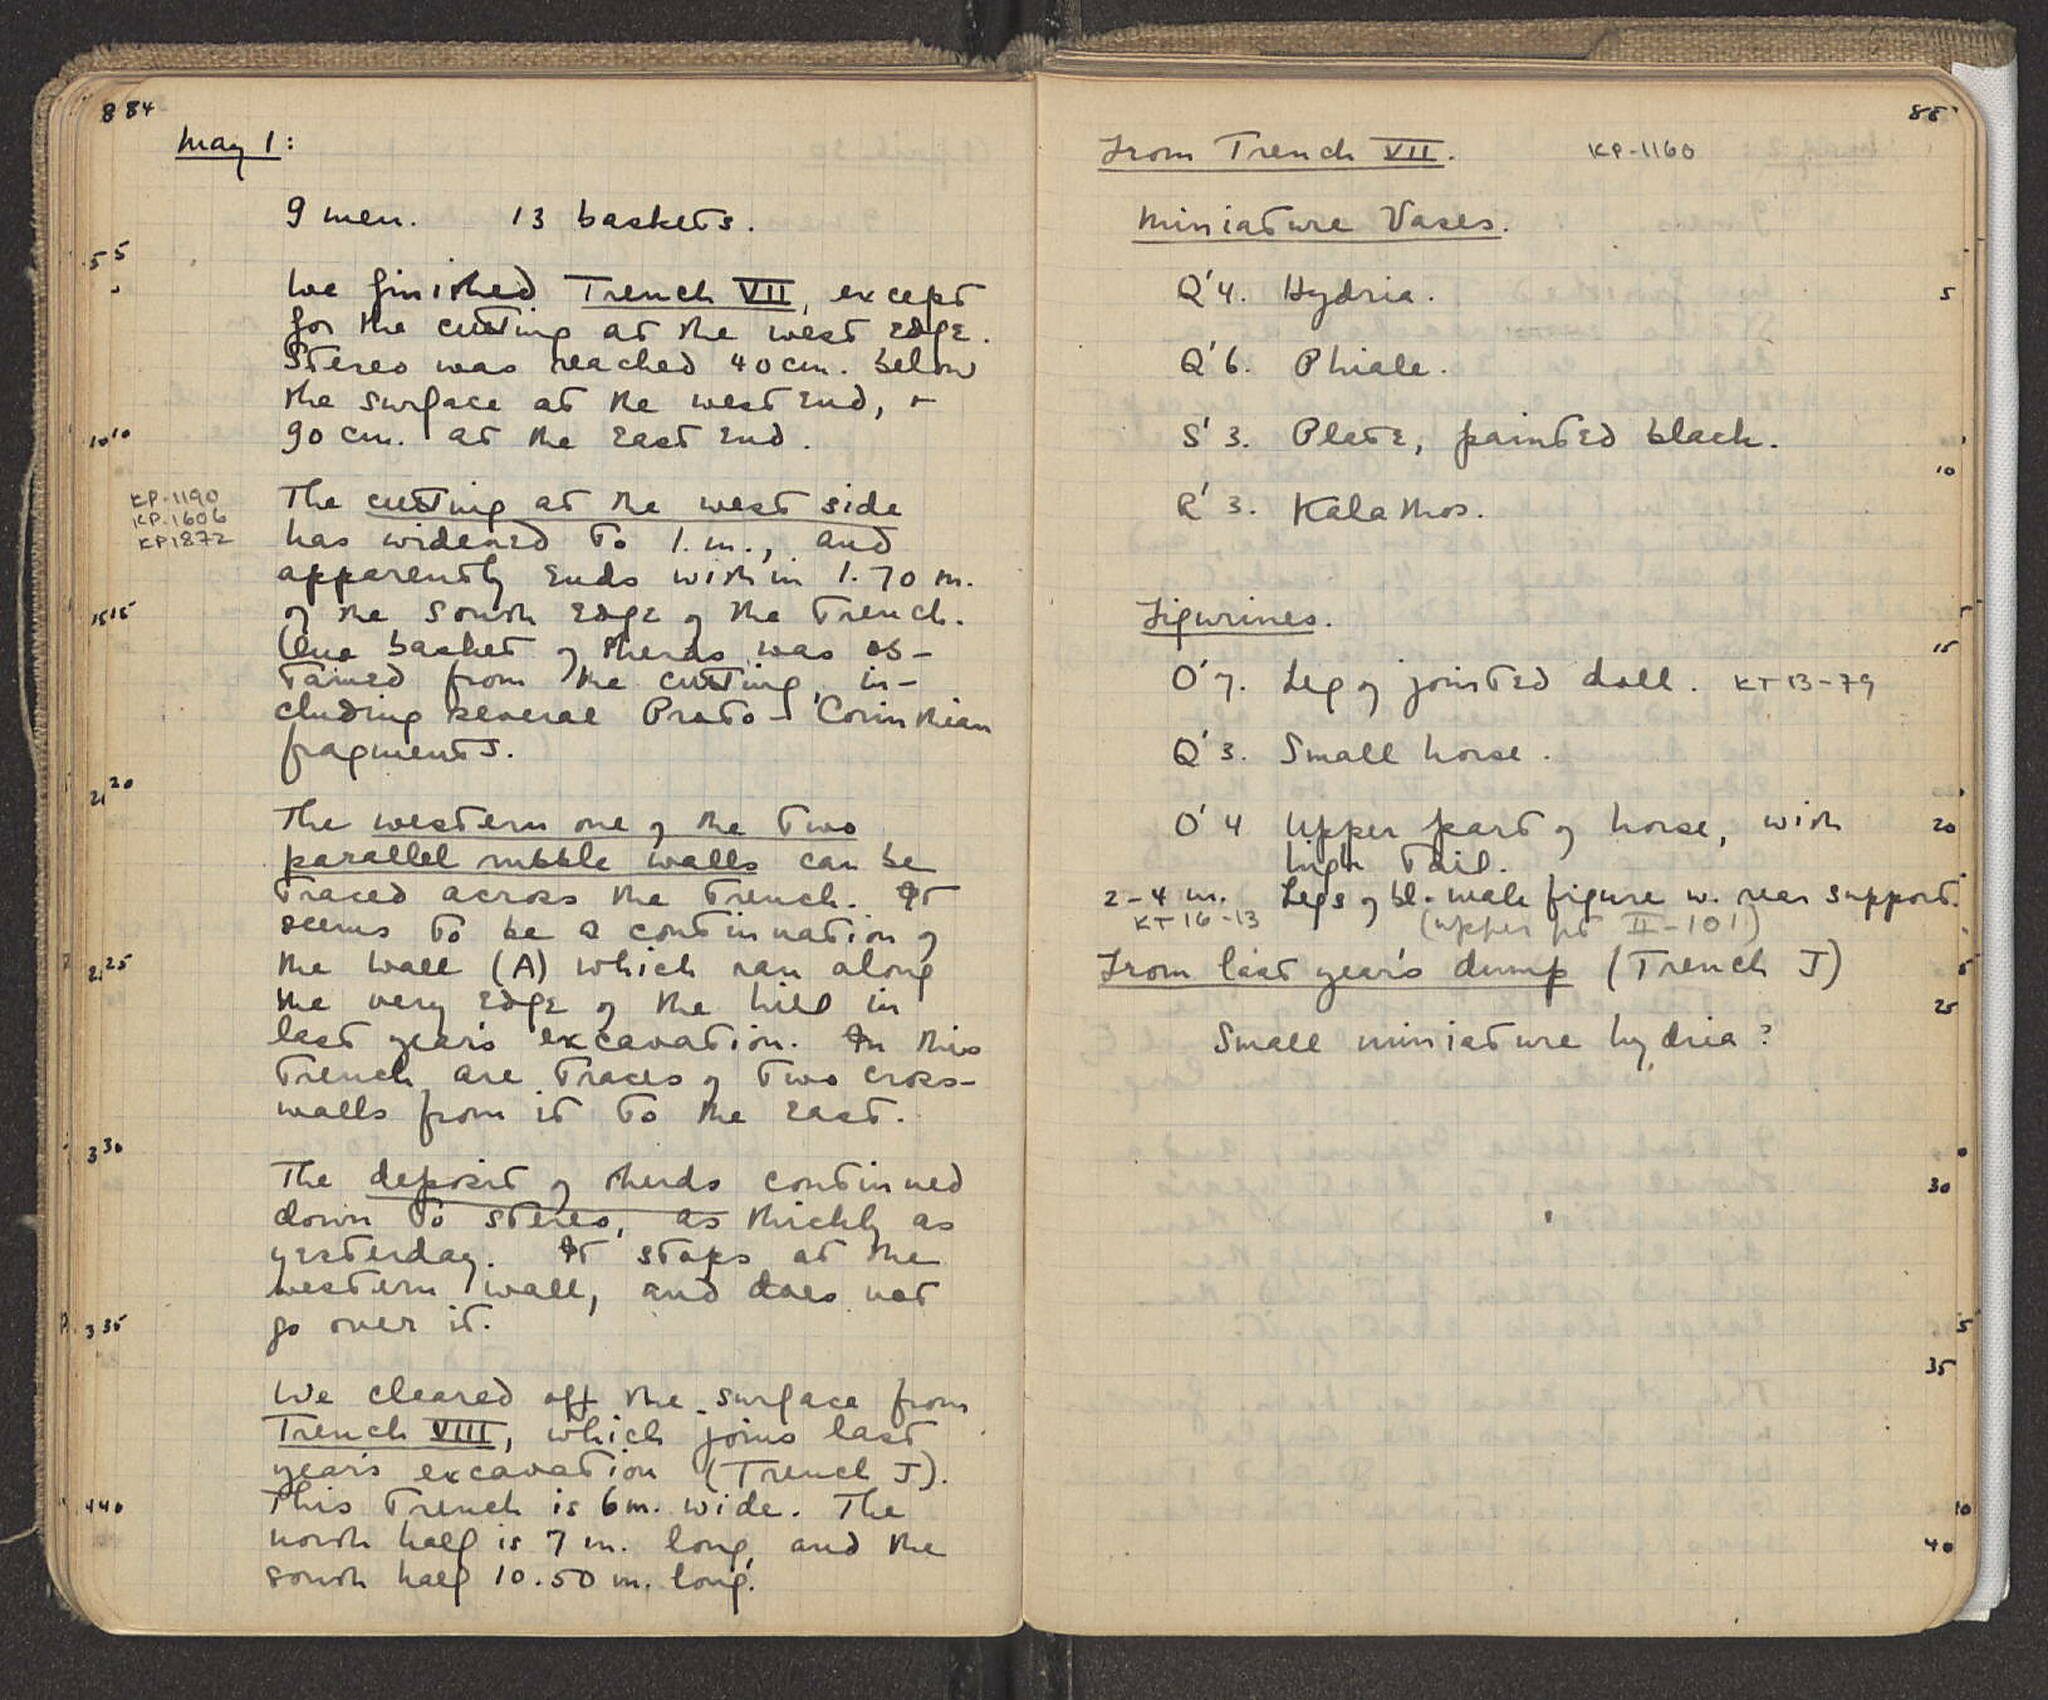 84
May 1:
9 men. 13 baskets.
5
We finished Trench VII, except
for the cutting at the west edge.
Stereo was reached 40 cm. below
the surface at the west end, +
10
90 cm. at the east end.
KP-1190
KP-1606
KP 1872
The cutting at the west side
has widened to 1. m., and
apparently ends within 1.70 m.
15
of the south edge of the trench.
One basket of sherds was ob-
tained from the cutting, in-
cluding several Proto-Corinthian
fragments.
20
The western one of the two
parallel rubble walls can be
traced across the trench. It
seems to be a continuation of
25
the wall (A) which ran along
the very edge of the hill in
last year's excavation. In this
trench are traces of two cross-
walls from it to the east.
30
The deposit of sherds continued
down to stereo, as thickly as
yesterday. It stops at the
western wall, and does not
35
go over it.
We cleared off the surface from
Trench VIII, which joins last
year's excavation (Trench J).
40
This trench is 6 m. wide. The
north half is 7 m. long, and the
south half 10.50 m. long.
85
From Trench VII. KP-1160
Miniature Vases.
Q'4. Hydria. 5
Q'6. Phiale.
S'3. Plate, painted black.
10
R'3. Kalathos.
Figurines.
15
O'7. Leg of jointed doll. KT 13-79
Q'3. Small horse.
O'4 Upper part of horse, with 20
high tail.
2-4 m. Legs of bl. male figure w. rear support.
KT 16-13 (upper pt II-101)
From last year's dump (Trench J)
25
Small miniature hydria?
30
35
40